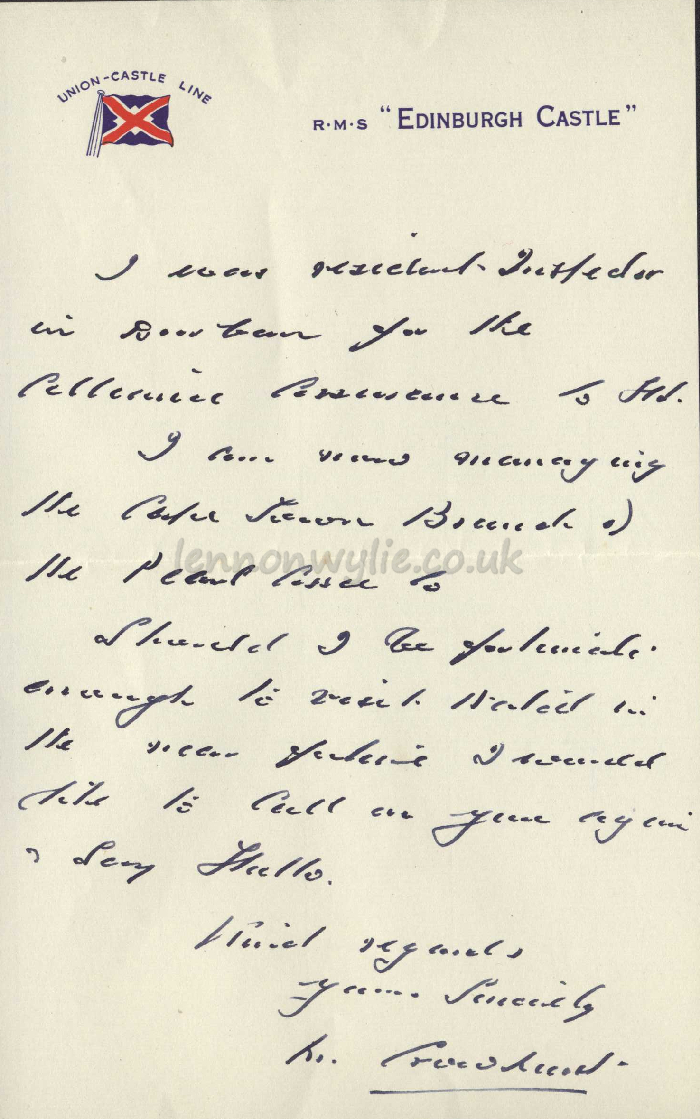 UNION-CASTLE LINE
R·M·S "EDINBURGH CASTLE"
I was resident Inspector
in Durban for the
Alliance Assurance Co Ltd.
I am now managing
the Cape Town Branch of
the Pearl Assce Co
lennonwylie.co.uk
Should I be fortunate
enough to visit Natal in
the near future I would
like to call on you again
& Say Hullo.
Kind regards
Yours Sincerely
Crowhurst